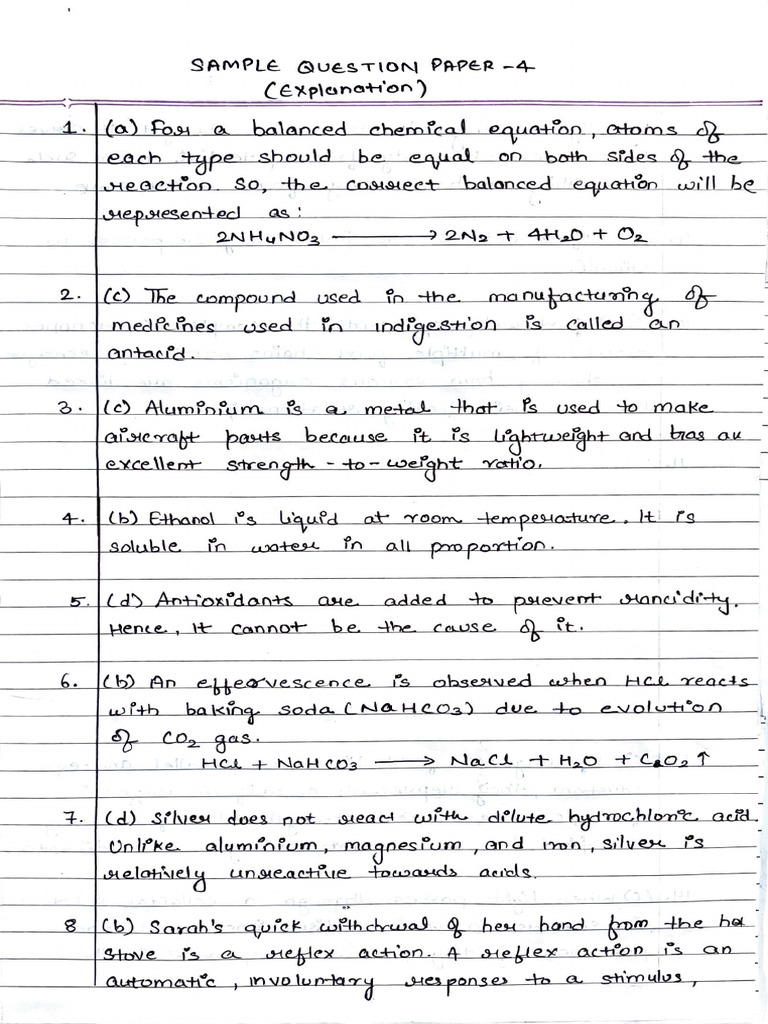 SAMPLE QUESTION PAPER -4
(Explanation)
1. (a) For a balanced chemical equation, atoms of
each type should be equal on both sides of the
reaction. So, the correct balanced equation will be
represented as:
2NH₄NO₃ ⟶ 2N₂ + 4H₂O + O₂
2. (c) The compound used in the manufacturing of
medicines used in indigestion is called an
antacid.
3. (c) Aluminium is a metal that is used to make
aircraft parts because it is lightweight and has an
excellent strength-to-weight ratio.
4. (b) Ethanol is liquid at room temperature. It is
soluble in water in all proportion.
5. (d) Antioxidants are added to prevent rancidity.
Hence, it cannot be the cause of it.
6. (b) An effeorvescence is observed when HCl reacts
with baking soda (NaHCO₃) due to evolution
of CO₂ gas.
HCl + NaHCO₃ ⟶ NaCl + H₂O + CO₂ ↑
7. (d) Silver does not react with dilute hydrochloric acid.
Unlike aluminium, magnesium, and iron, silver is
relatively unreactive towards acids.
8 (b) Sarah's quick withdrwal of her hand from the hot
stove is a reflex action. A reflex action is an
automatic, involuntary responses to a stimulus,